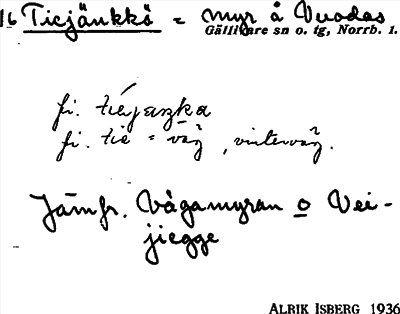 16 Tiejänkkä = myr å Vuodas
Gällivare sn o. tg, Norrb. l.
fi. tiejaŋka
fi. tie = väg, vinterväg.
Jämfr. Vägamyran o Vei-
jiegge
ALRIK ISBERG 1936